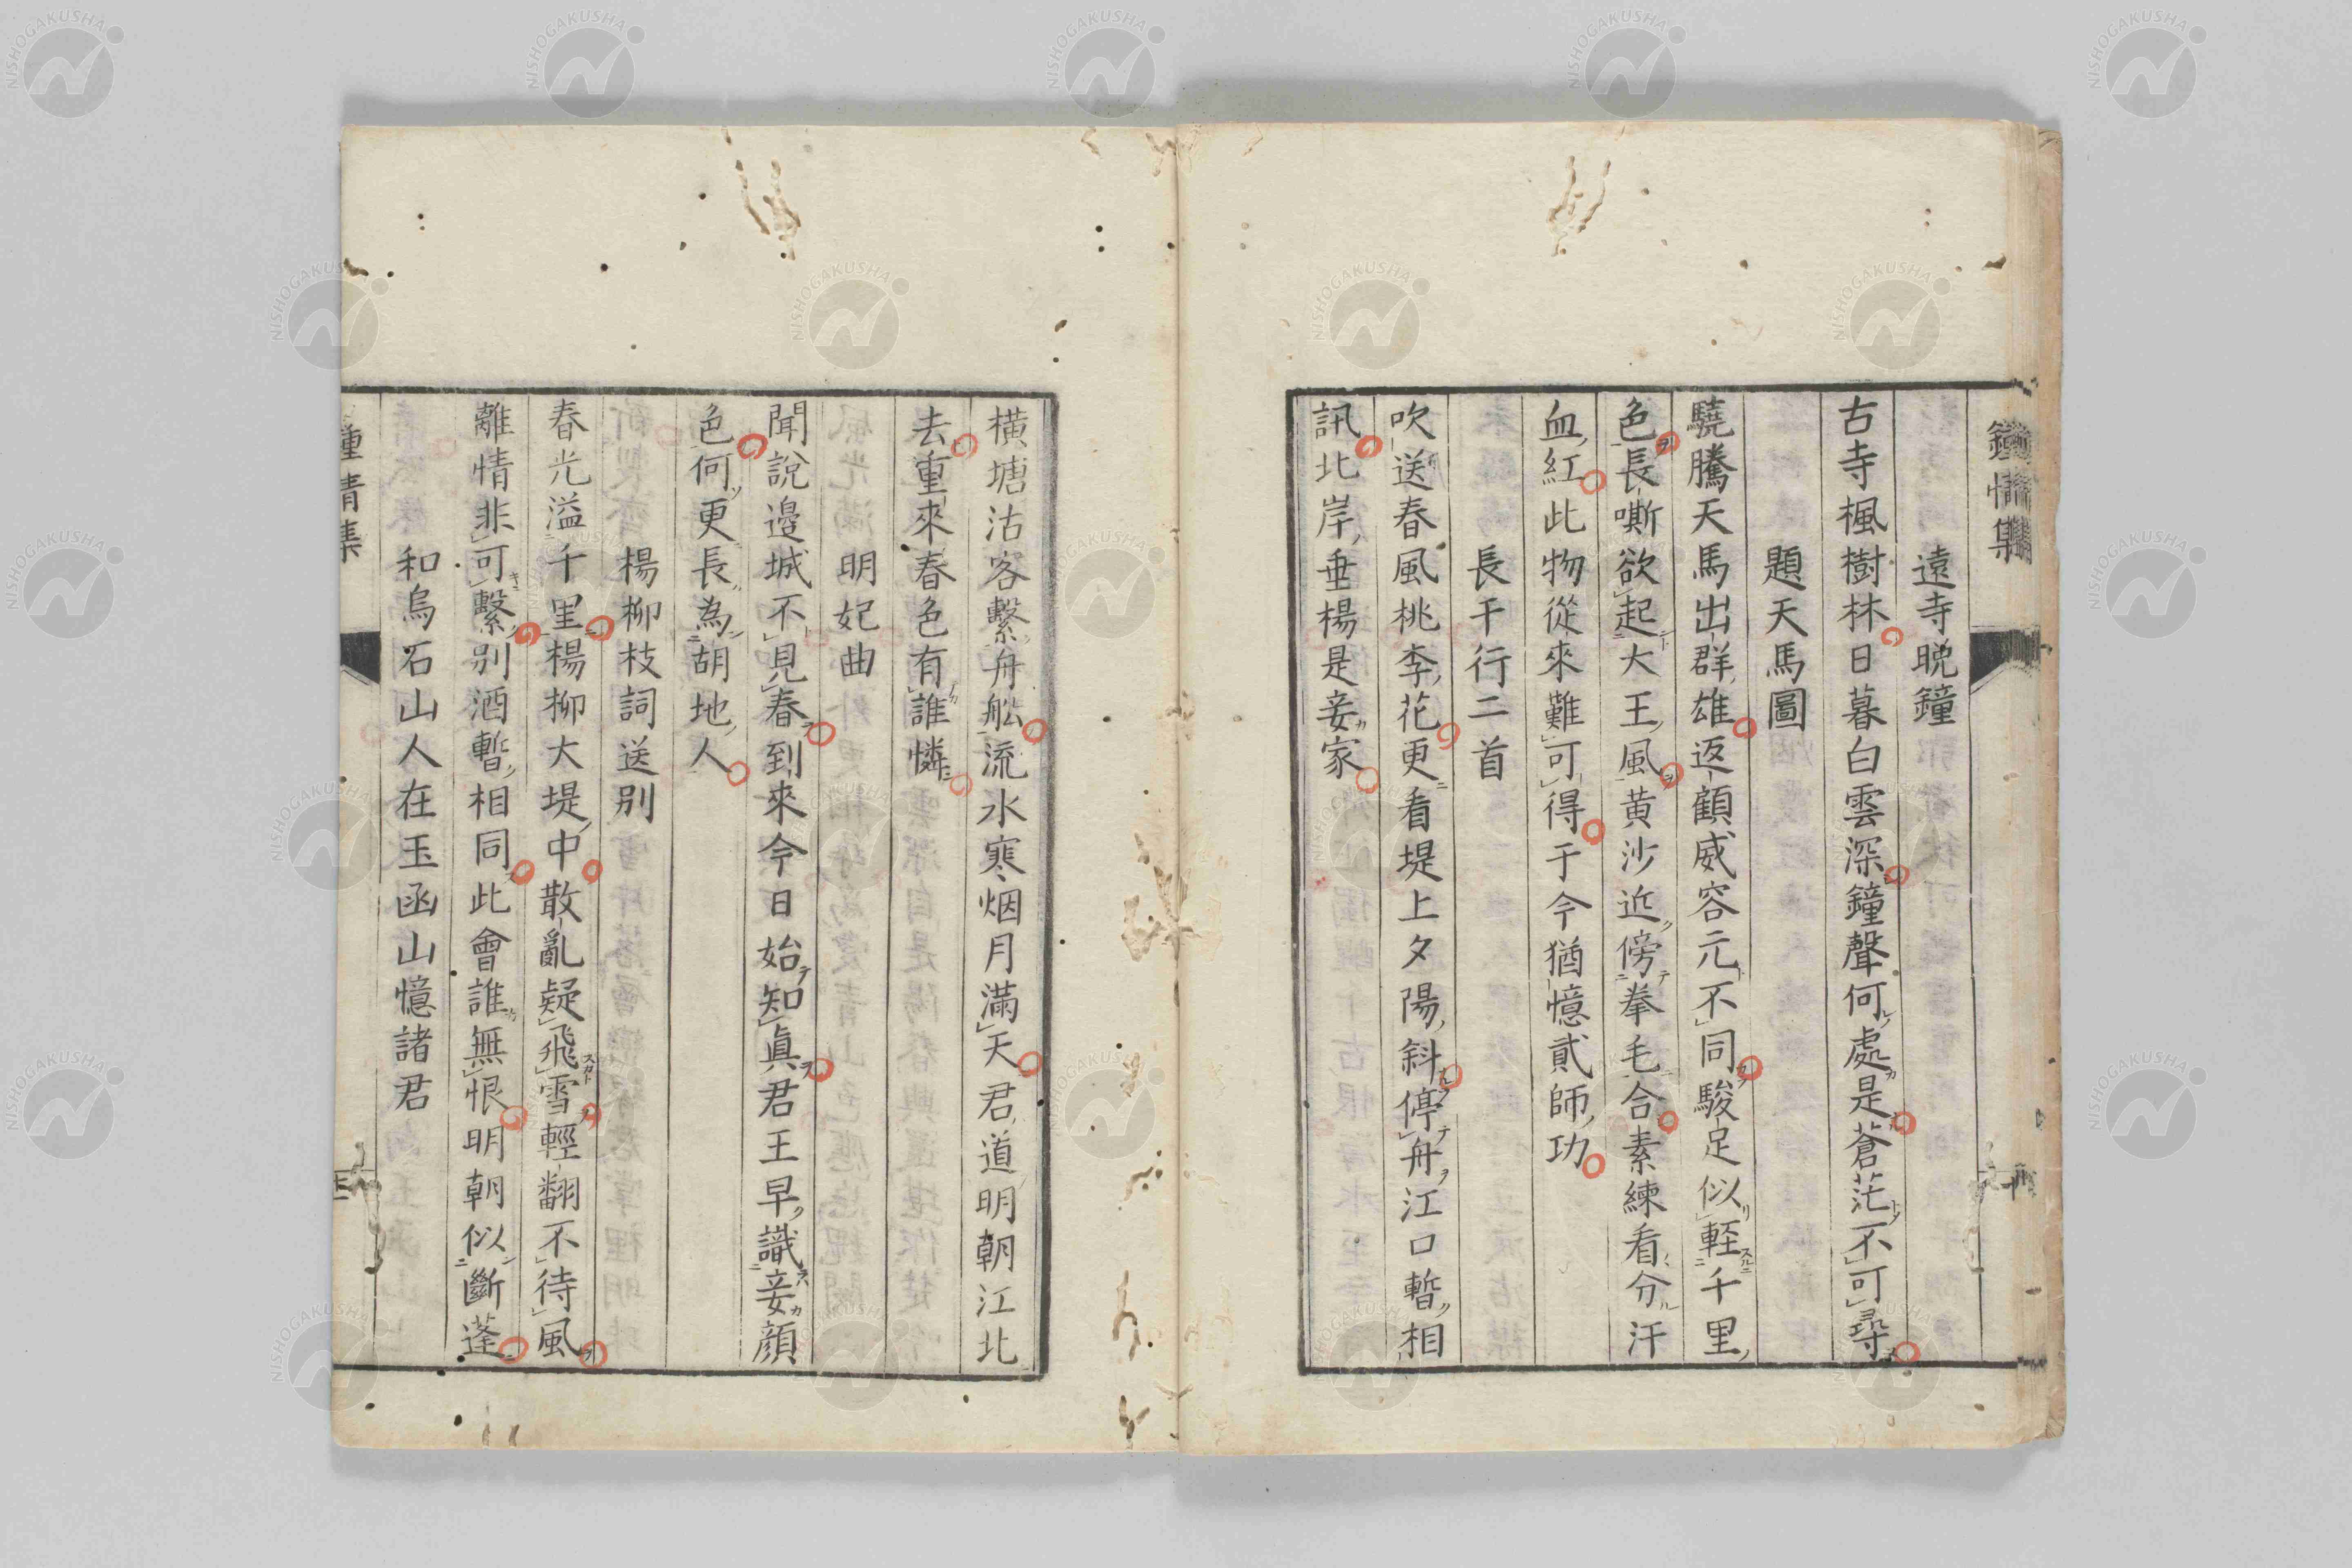 鍾情集
遠寺晩鐘
古寺楓樹林日暮白雲深鐘聲何處是蒼茫不可尋
題天馬圖
驍騰天馬出群雄返顧威容元不同駿足似輕千里
色長嘶欲起大王風黄沙近傍拳毛合素練看分汗
血紅此物從來難可得于今猶憶貳師功
長干行二首
吹送春風桃李花更看堤上夕陽斜停舟江口暫相
訊北岸垂楊是妾家
横塘沽客繫舟舩流水寒烟月滿天君道明朝江北
去重來春色有誰憐
明妃曲
聞說邊城不見春到來今日始知眞君王早識妾顔
色何更長為胡地人
楊柳枝詞送別
春光溢千里楊柳大堤中散亂疑飛雪輕翻不待風
離情非可繫別酒暫相同此會誰無恨明朝似斷蓬
和烏石山人在玉函山憶諸君
鍾情集
NISHOGAKUSHA